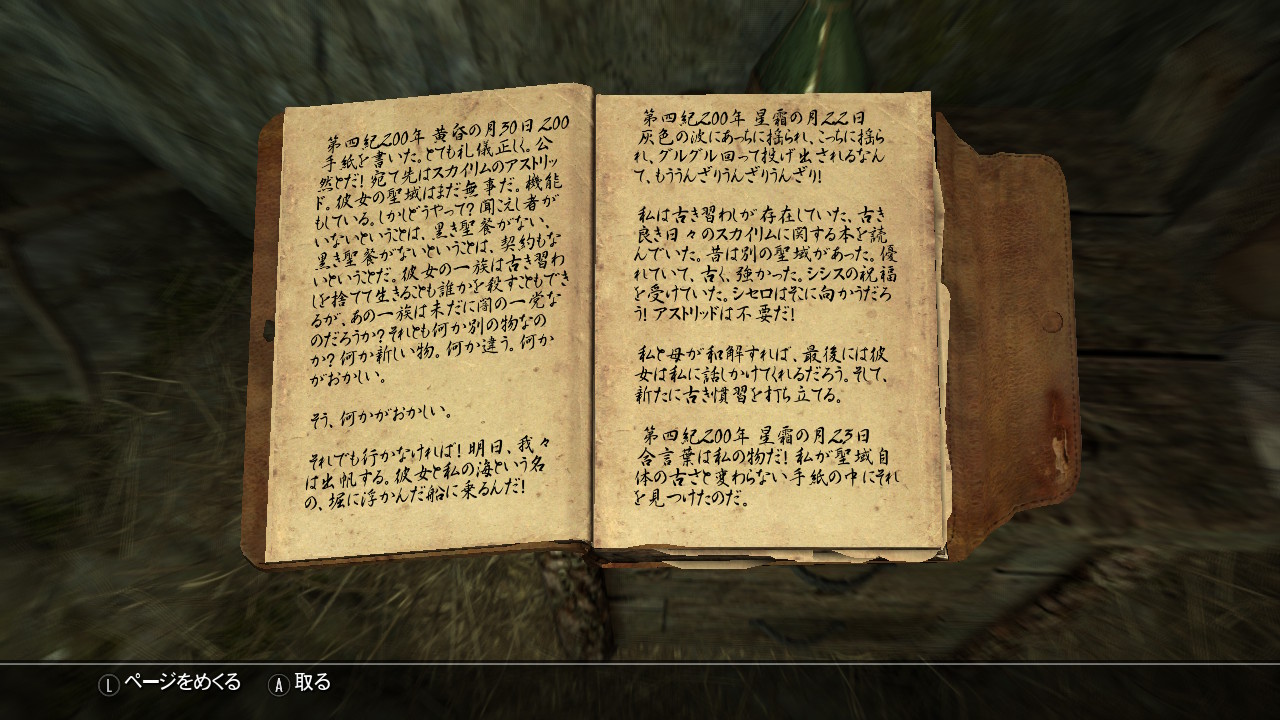 第四紀200年 黄昏の月30日 200
手紙を書いた。とても礼儀正しく。公
然とだ! 宛て先はスカイリムのアストリッ
ド。彼女の聖域はまだ無事だ。機能
もしている。しかしどうやって? 聞こえし者が
いないということは、黒き聖餐がない、
黒き聖餐がないということは、契約もな
いということだ。彼女の一族は古き習わ
しを捨てて生きることも誰かを殺すこともでき
るが、あの一族は未だに闇の一党な
のだろうか? それとも何か別の物なの
か? 何か新しい物。何か違う。何か
がおかしい。
そう、何かがおかしい。
それでも行かなければ! 明日、我々
は出帆する。彼女と私の海という名
の、堀に浮かんだ船に乗るんだ!
第四紀200年 星霜の月22日
灰色の波にあっちに揺られ、こっちに揺ら
れ、グルグル回って投げ出されるなん
て、もううんざりうんざりうんざり!
私は古き習わしが存在していた、古き
良き日々のスカイリムに関する本を読
んでいた。昔は別の聖域があった。優
れていて、古く、強かった。シシスの祝福
を受けていた。シセロはそこに向かうだろ
う! アストリッドは不要だ!
私と母が和解すれば、最後には彼
女は私に話しかけてくれるだろう。そして、
新たに古き慣習を打ち立てる。
第四紀200年 星霜の月23日
合言葉は私の物だ! 私が聖域自
体の古さと変わらない手紙の中にそれ
を見つけたのだ。
L ページをめくる A 取る